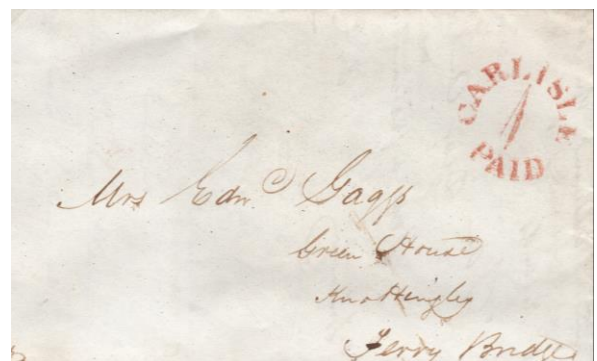 CARLISLE
1
PAID
Mrs Edwd Gaggs
Green House
Knottingley
Ferry Bridge